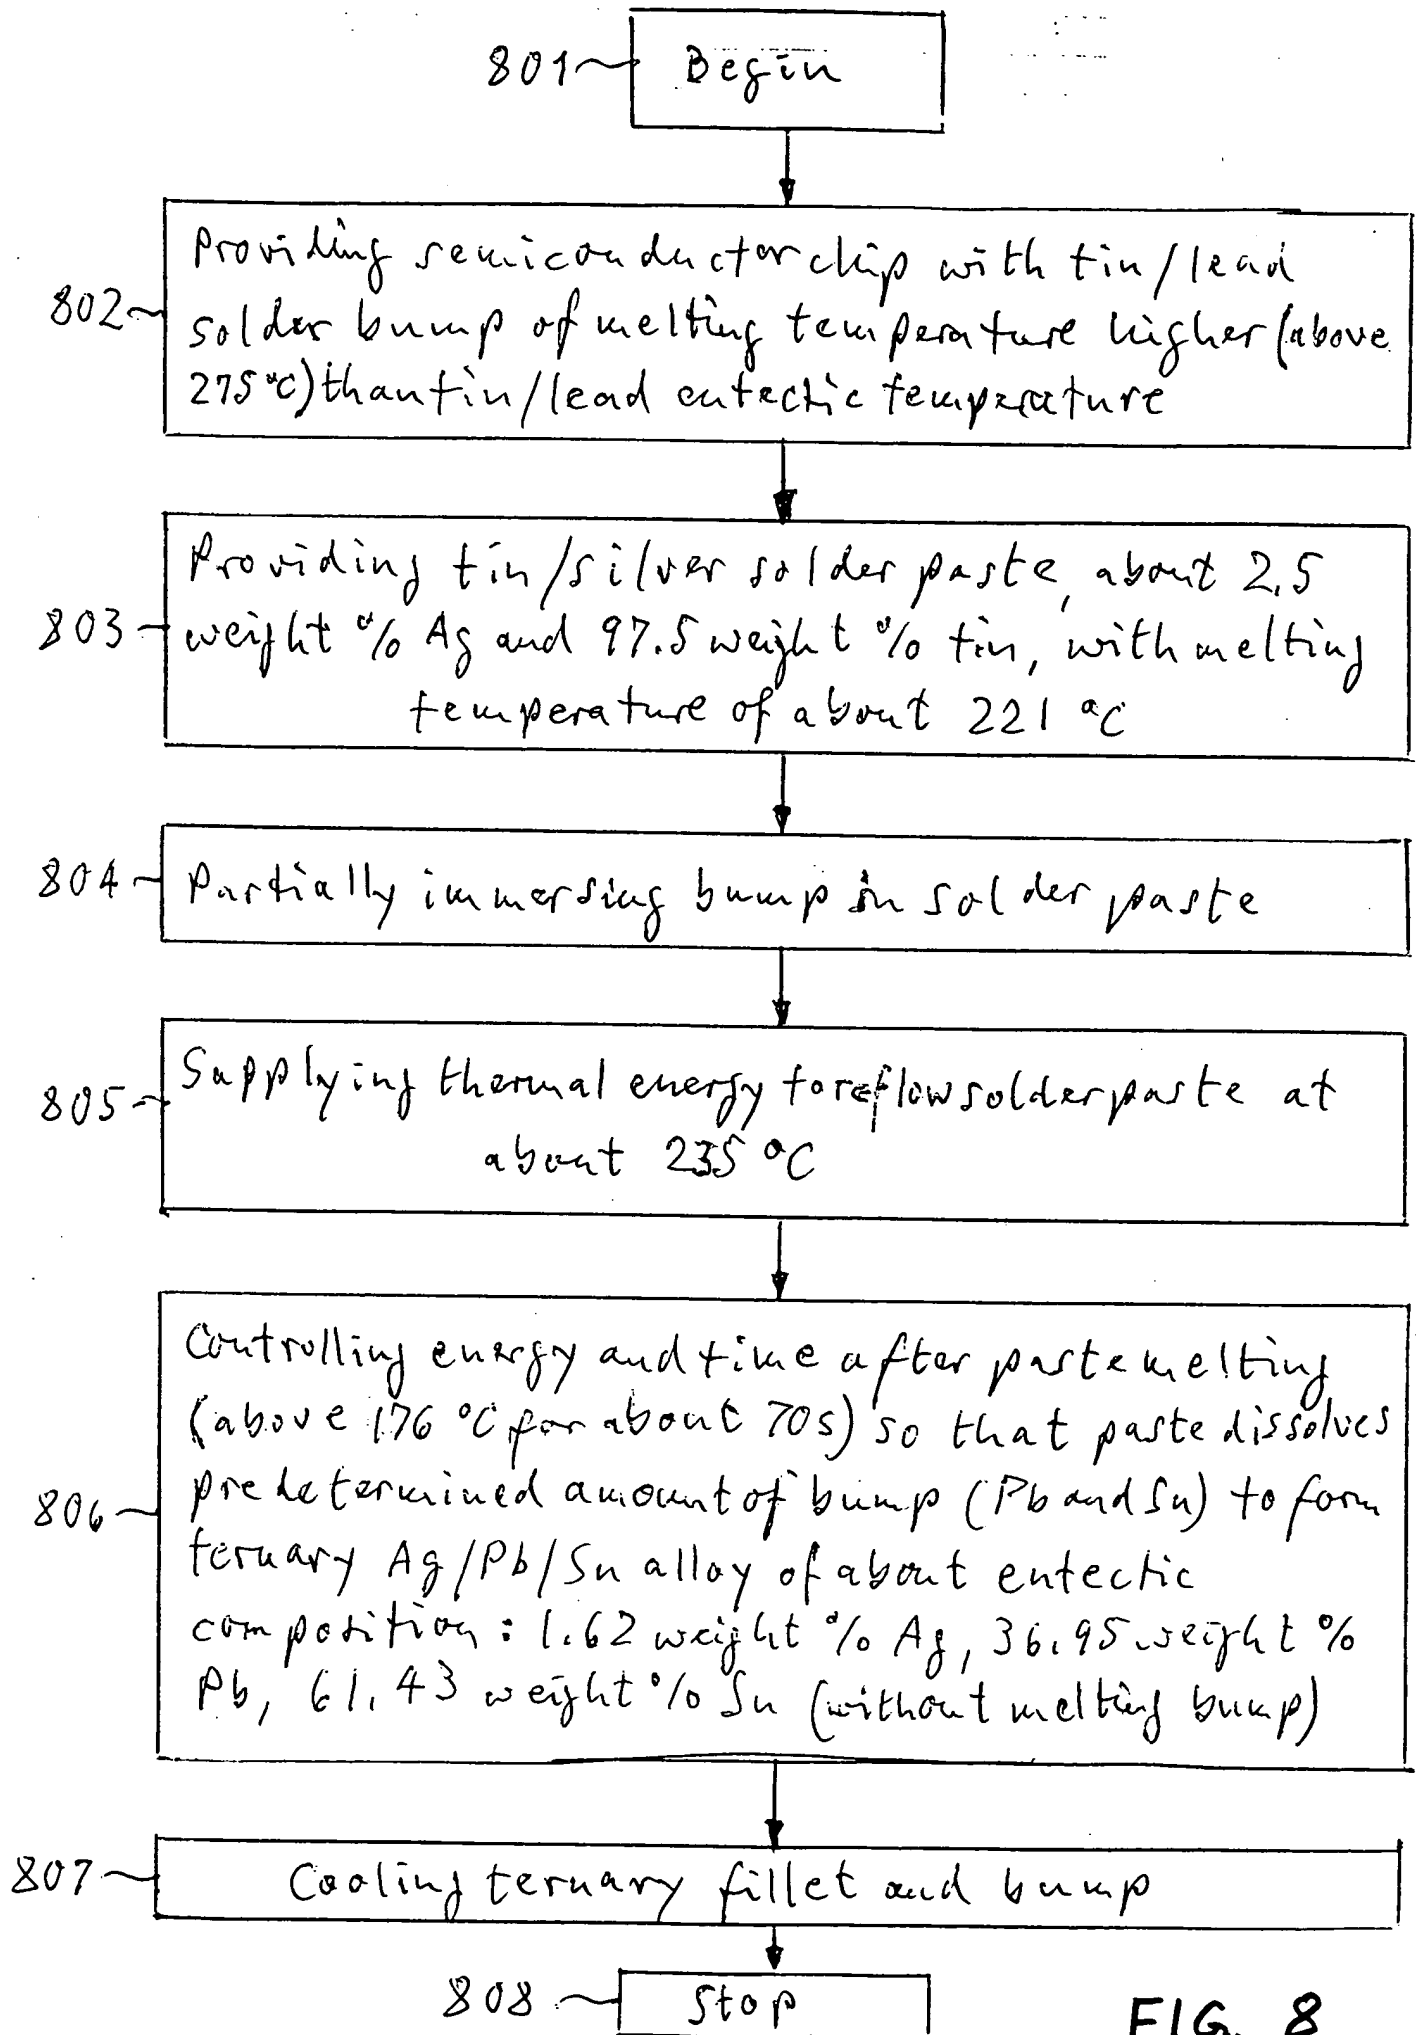 801 Begin
Providing semiconductor chip with tin/lead
802 solder bump of melting temperature higher (above
275°C) than tin/lead eutectic temperature
Providing tin/silver solder paste, about 2.5
803 weight % Ag and 97.5 weight % tin, with melting
temperature of about 221 °C
804 Partially immersing bump in solder paste
805 Supplying thermal energy to reflow solder paste at
about 235 °C
Controlling energy and time after paste melting
(above 176 °C for about 70s) so that paste dissolves
predetermined amount of bump (Pb and Sn) to form
806 ternary Ag/Pb/Sn alloy of about eutectic
composition: 1.62 weight % Ag, 36.95 weight %
Pb, 61.43 weight % Sn (without melting bump)
807 Cooling ternary fillet and bump
808 Stop
FIG. 8